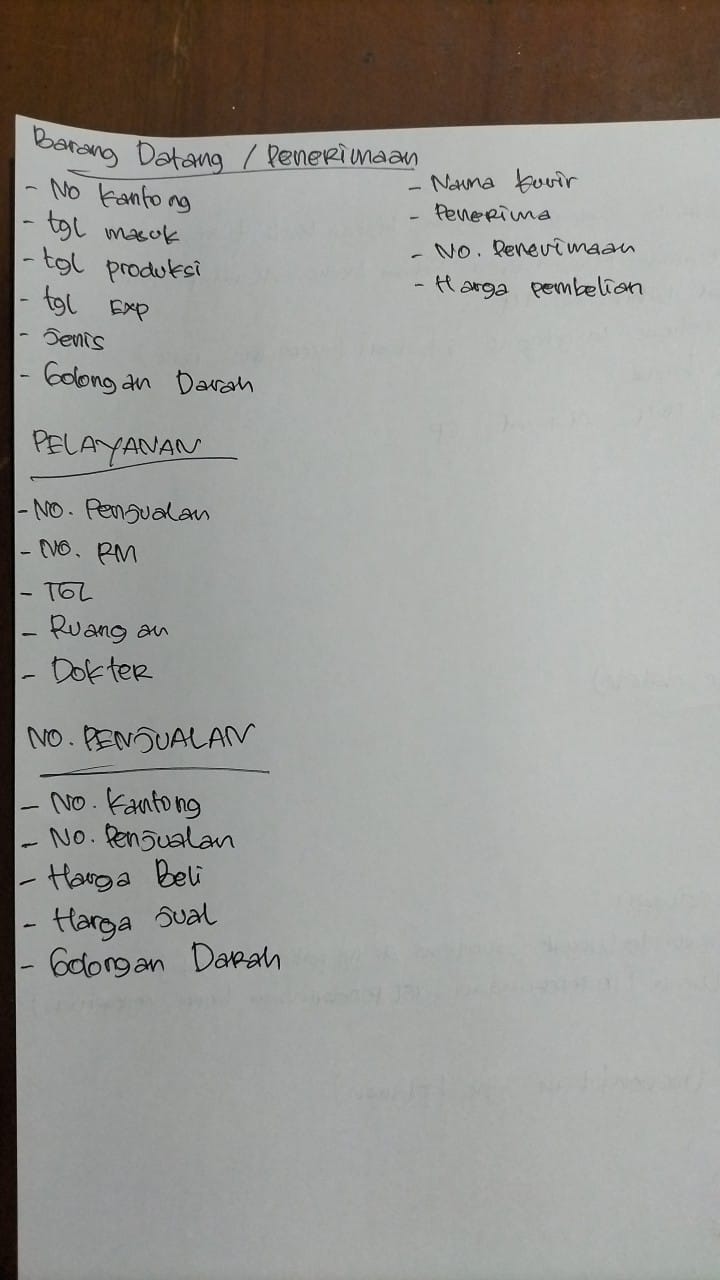 Barang Datang / Penerimaan
- No Kantong
- tgl masuk
- tgl produksi
- tgl Exp
- Jenis
- Golongan Darah
- Nama kurir
- Penerima
- No. Penerimaan
- Harga pembelian
PELAYANAN
- No. Penjualan
- No. RM
- TGL
- Ruangan
- Dokter
NO. PENJUALAN
- No. Kantong
- No. Penjualan
- Harga Beli
- Harga Jual
- Golongan Darah